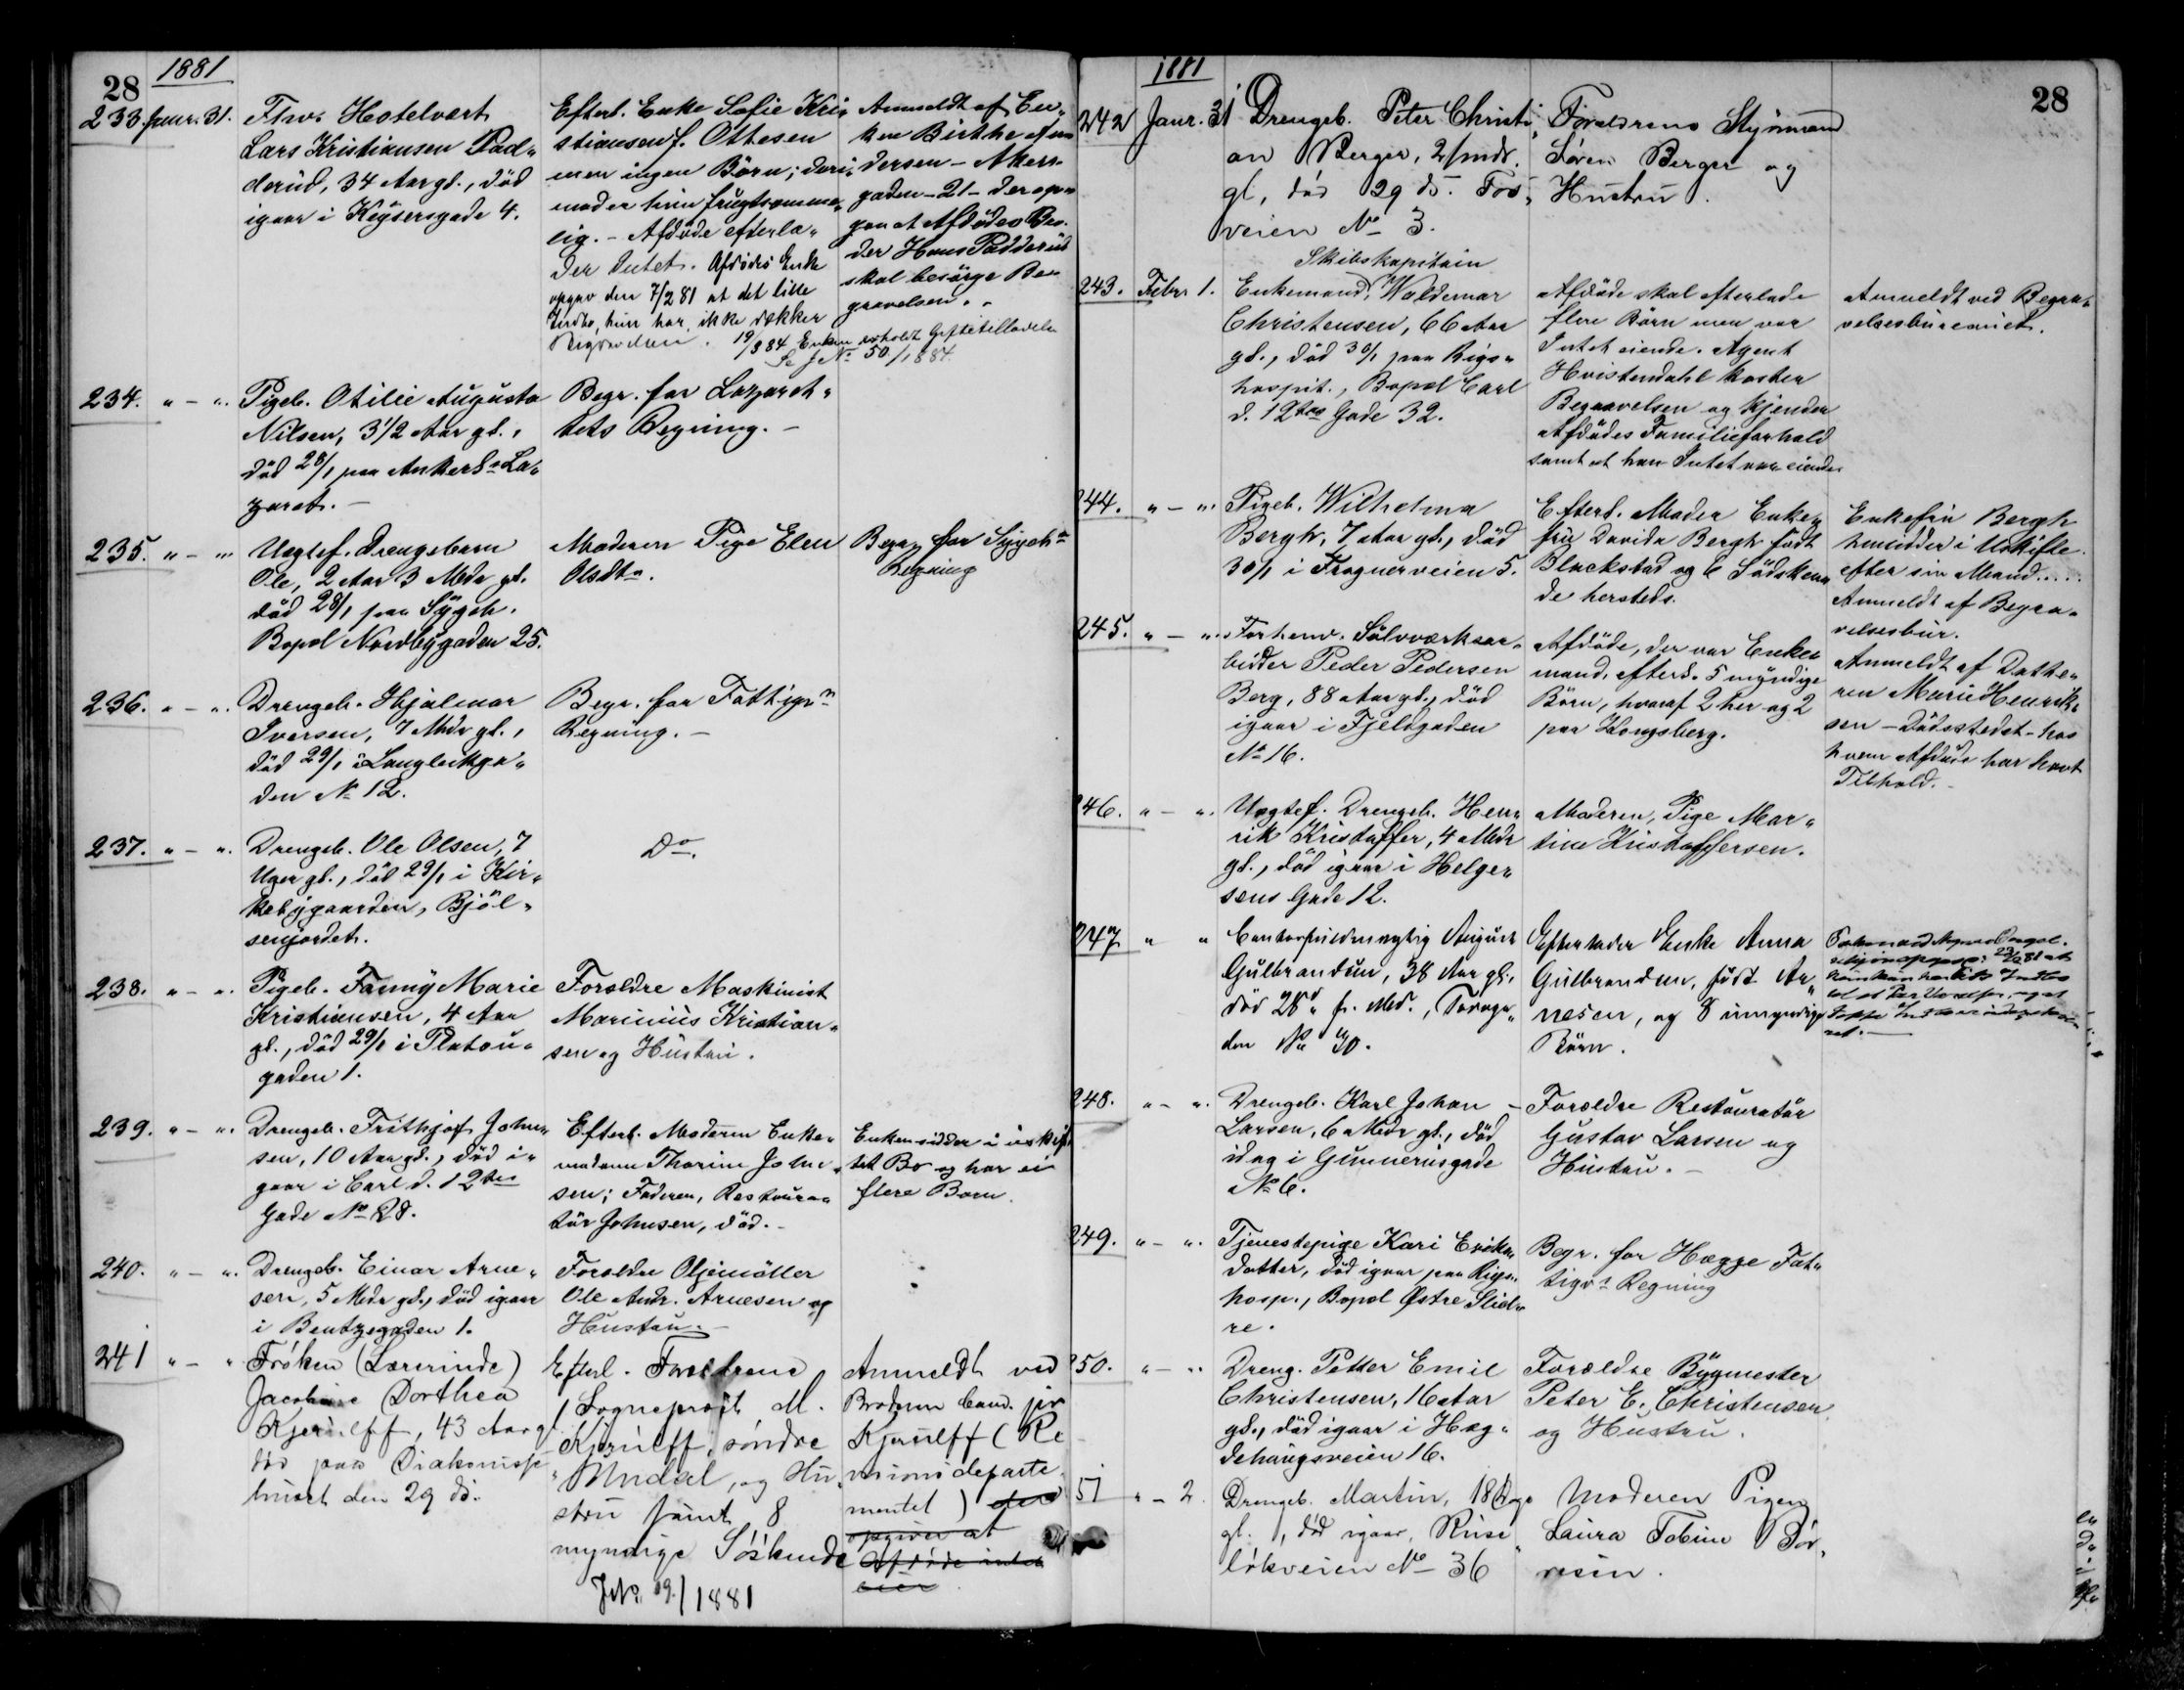 28
1881
233. Januar. 31.
Fhv. Hotelvært
Lars Kristiansen Pad„
derud, 34 Aar gl., død
igaar i Keysersgade 4.
Efterl. Enke Sofie Kri„
stiansen f. Ottesen
men ingen Börn; deri„
mod er hun frugtsomme„
lig. - Afdøde efterla„
der Intet. Afdødes Enke
opgav den 7/2 81 at det lille
Indbo, hun har, ikke dækker
Begravelsen. 19/3 84 Enken erholdt Giftetilladelse
Se J No 50/1884.
Anmeldt af En„
ken Birthe An„
dersen - Akers„
gaden - 21 - der opgav
at Afdødes Bro„
der Hans Padderud
skal besørge Be„
gravelsen. -
234. " - ".
Pigeb. Otilie Augusta
Nilsen, 3 1/2 Aar gl.,
död 28/1 paa Ankerl. La„
zaret. -
Begr. for Lazaret„
tets Regning. -
235. " - "
Uægtef. Drengebarn
Ole, 2 Aar 3 Mdr gl.
död 28/1 paa Sygeh.
Bopæl Nordbygaden 25.
Moderen Pige Elen
Olsdtr.
Begr. for Sygeh
Regning
236. " - ".
Drengeb. Hjalmar
Iversen, 7 Mdr gl.,
död 29/1 i Langleikga„
den No 12.
Begr. for Fattigv
Regning. -
237. " - ".
Drengeb. Ole Olsen, 7
Uger gl., död 29/1 i Kir„
kebygaarden, Bjöl„
senjordet.
Do.
238. " - ".
Pigeb. Fanny Marie
Kristiansen, 4 Aar
gl., død 29/1 i Platou„
gaden 1.
Forældre Maskinist
Marinius Kristian„
sen og Hustru.
239. " - ".
Drengeb. Frithjof John„
sen, 10 Aar gl., död i„
gaar i Carl d. 12tes
Gade No 28.
Efterl. Moderen Enke„
madame Thorine John„
sen; Faderen, Restaura„
tør Johnsen, død. -
Enken sidder i uskif
tet Bo og har ei
flere Born.
240. " - ".
Drengeb. Einar Arne„
sen, 5 Mdr gl., död igaar
i Bentzegaden 1.
Forældre Oljemöller
Ole Andr. Arnesen og
Hustru. -
241 " - "
Frøken (Lærerinde)
Jacobine Dorthea
Kjerulff, 43 Aar gl
død paa Diakonisse
huset den 29 ds.
Efterl. Forældrene
Sogneprest M.
Kjerulff, söndre
Undal, og Hu„
stru samt 8
myndige Søskende
JNo. 19./1881
Anmeldt ved
Broderen Cand. jur
Kjerulff (Re
visionsdeparte
mentet) der
opgiver at
Afdøde intet
eier
1881
28
242 Janr. 31
Drengeb. Peter Christi„
an Berger, 2 mdr.
gl, död 29 ds. Fos„
veien No 3.
Forældrene Styrmand
Søren Berger og
Hustru.
243. Febr. 1.
Skibskapitain
Enkemand, Waldemar
Christensen, 66 Aar
gl., död 30/1 paa Rigs„
hospit., Bopæl Carl
d. 12tes Gade 32.
Afdøde skal efterlade
flere Börn men var
Intet eiende. Agent
Hvistendahl koster
Begravelsen og kjender
Afdødes Familieforhold
samt at han Intet var eiende.
Anmeldt ved Begra„
velsesbureauet.
244. " - ".
Pigeb. Wilhelma
Bergh, 7 Aar gl., død
30/1 i Frognerveien 5.
Efterl. Moder Enke„
fru Davida Bergh født
Blackstad og 6 Södsken„
de hersteds.
Enkefru Bergh
hensidder i Uskifte
efter sin Mand.....
Anmeldt af Begra„
velsesbür.
245. " - ".
Forhenv. Sölvværksar„
beider Peder Pedersen
Berg, 88 Aar gl., død
igaar i Fjeldgaden
No 16.
Afdøde, der var Enke„
mand, efterl. 5 myndige
Börn, hvoraf 2 her og 2
paa Kongsberg.
Anmeldt af Datte„
ren Marie Henrik„
sen - Dødsstedet - hos
hvem Afdøde har havt
Tilhold. -
246. " - ".
Uægtef. Drengeb. Hen„
rik Kristoffer, 4 Mdr
gl., död igaar i Helge„
sens Gade 12.
Moderen, Pige Mar„
tine Kristoffersen.
247 " "
Contorfuldmægtig August
Gulbrandsen, 38 Aar gl.,
död 28d f. Md., Torvga„
den No 40.
Efterlader Enke Anna
Gulbrandsen, født Ar„
nesen, og 8 umyndige
Börn.
248. " - ".
Drengeb. Karl Johan -
Larsen, 6 Mdr gl., død
idag i Gunnerusgade
No 6.
Forældre Restauratör
Gustav Larsen og
Hustru. -
249. " - ".
Tjenestepige Kari Eriks„
datter, død igaar paa Rigs„
hosp., Bopæl Østre Slid„
re.
Begr. for Hegge Fat„
tigvs Regning
250. " - "
Dreng. Petter Emil
Christensen, 16 Aar
gl., död igaar i Hæg„
dehaugsveien 16.
Forældre Bygmester
Peter E. Christensen
og Hustru.
51 " - 2.
Drengeb. Martin, 18 Dage
gl., død igaar, Ruse„
løkveien No 36
Moderen Pigen
Laura Tobine